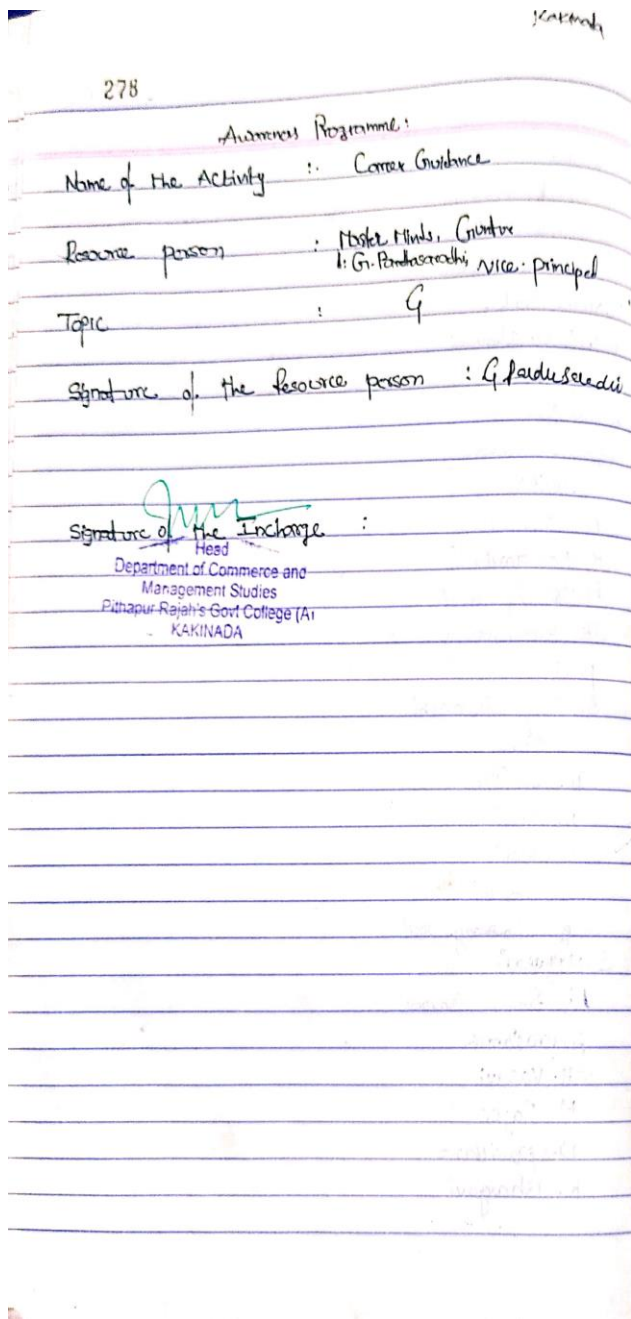 Kakinada
278
Awareness Programme:
Name of the Activity :. Career Guidance
Resource person : Master Minds, Guntur
1: G. Pardhasaradhi, Vice. principal
Topic : G
Signature of the Resource person : G
Signature of the Incharge :
Head
Department of Commerce and
Management Studies
Pithapur Rajah's Govt College (A
KAKINADA